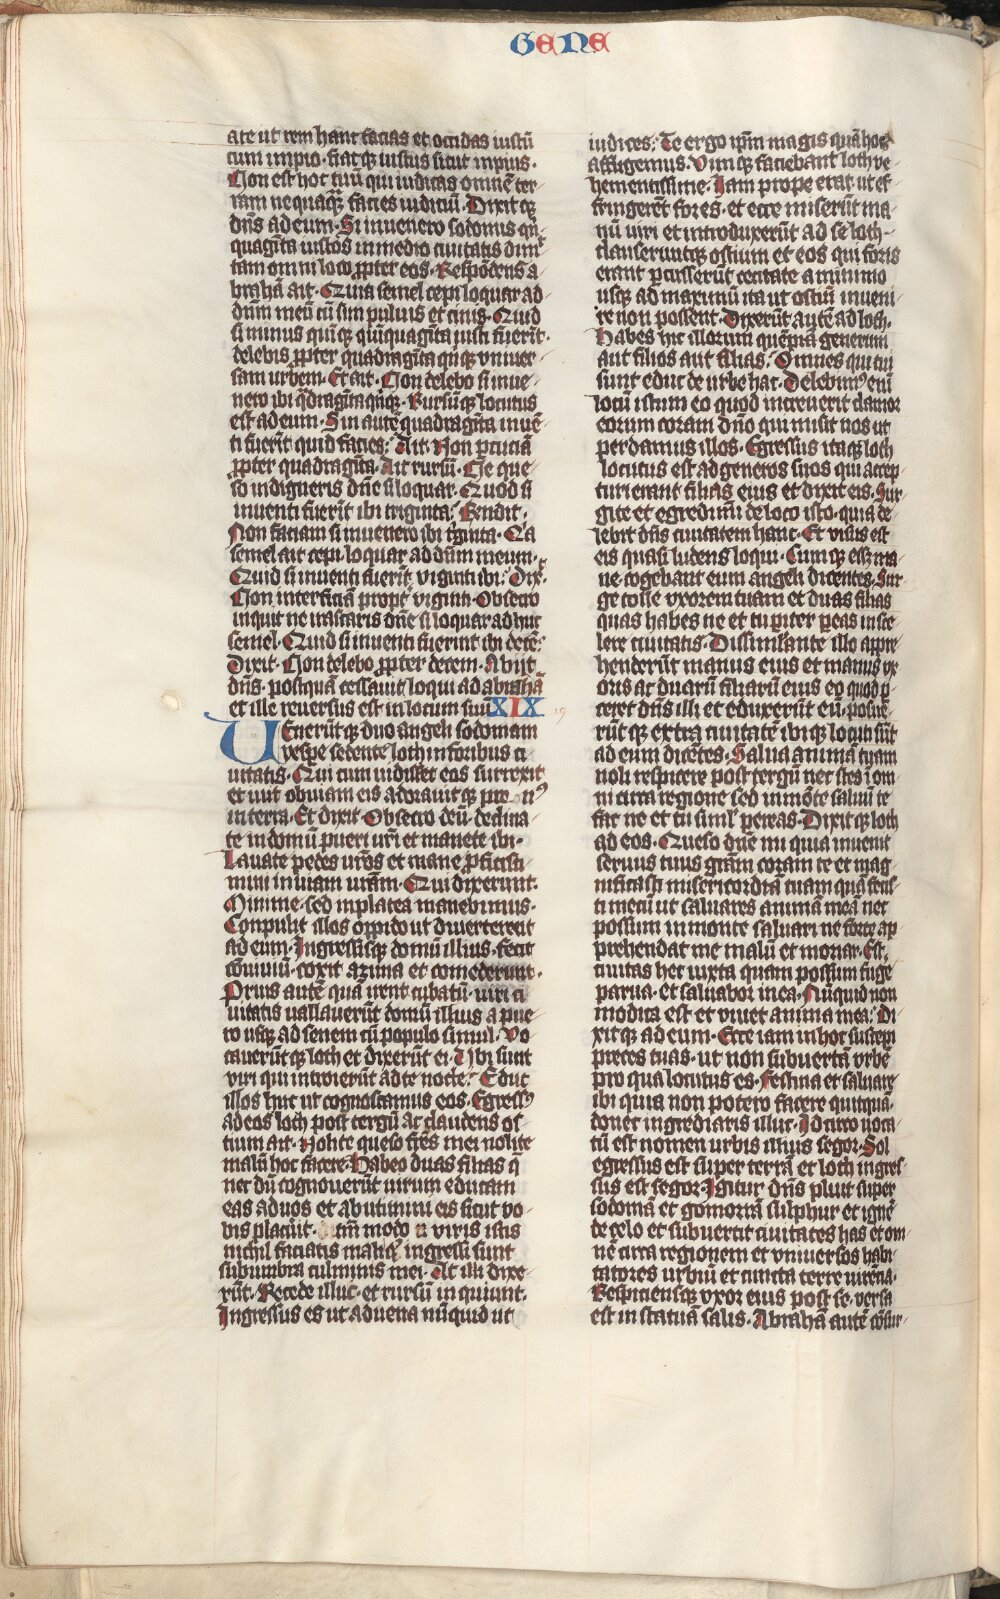 GENE
ate ut rem hanc facias et occidas iustū
cum impio. fiatq̄ iustus sicut inpius.
Non est hoc tuū qui iudicas omnē ter
ram nequaq̄ȝ facies iudiciū. Dixitq̄
dn̄s ad eum. Si invenero sodomis qn̄
quagīta iustos in medio ciuitatis dimit
tam omni loco ꝓpter eos. Respōdens a
brahā ait. Quia semel cepi loquar ad
dn̄m meū cū sim puluis et cinis. Quid
si minus quīq̄ quīquagīta iusti fuerīt.
delebis ꝓpter quadragīta qīq̄ vniuer
sam urbem. Et ait. Non delebo si inue
nero ibi q̄dragīta qīq̄. Rursūq̄ locutus
est ad eum. Sin autē quadragīta invē
ti fuerīt quid facies? Ait. Non ꝑcutiā
ꝓpter quadragīta. Ait rursū. Ne que
so indigneris dn̄e si loquar. Quod si
inventi fuerīt ibi triginta? Rn̄dit.
Non faciam si invenero ibi tͥginta. Q̄a
semel ait cepi loquar ad dn̄m meum.
Quid si inventi fuerīt viginti ibi? Dix̄.
Non interficiā propt̄ viginti. Obsecro
inquit ne irascaris dn̄e si loquar adhuc
semel. Quid si inuenti fuerint ibi decē?
Dixit. Non delebo ꝓpter decem. Abijt
dn̄s. postquā cessauit loqui ad abrahā
et ille reuersus est in locum suū XIX 19
UEnerūtq̄ duo angeli sodomam
vesp̄e sedente loth in foribus ci
uitatis. Qui cum uidisset eos surrexit
et iuit obuiam eis adorauitq̄ pronꝰ
in terra. Et dixit. Obsecro dn̄i. declina
te in domū pueri vr̄i et manete ibi.
Lauate pedes vr̄os et mane ꝓficisci
mini in viam vrām. Qui dixerunt.
Minime. sed in platea manebimus.
Conpulit illos oppido ut diuerterent
ad eum. Ingressisq̄ domū illius. fecit
cōuiuiū. coxit azima et comederunt.
Prius autē quā irent cubatū. viri ci
uitatis vallauerūt domū illius a pue
ro usq̄ ad senem cū populo simul. Vo
caverūtq̄ loth et dixerūt ei. Ubi sunt
viri qui introierūt ad te nocte? Educ
illos huc ut cognoscamus eos. Egressꝰ
ad eos loth post tergū ac claudens os
tium ait. Nolite queso fr̄es mei nolite
malū hoc facere. Habeo duas filias q̄
nec dū cognouerūt uirum educam
eas ad uos et abutimini eis sicut vo
bis placuit. tm̄ modo viris istis
nichil faciatis mali q̄ ingressi sunt
sub umbra culminis mei. At illi dixe
rūt. Recede illuc. et rursū inquiunt.
Ingressus es ut aduena nūquid ut
iudices? Te ergo ip̄m magis quā hos
affligemus. Vimq̄ faciebant loth ve
hementissime. Iam prope erat ut ef
fringerēt fores. et ecce miserūt ma
nū viri et introduxerūt ad se loth.
clauseruntq̄ ostium et eos qui foris
erant ꝑcusserūt cecitate a minimo
usq̄ ad maximū ita ut ostiū inveni
re non possent. Dixerūt autē ad loth.
Habes hic illorum quēpiā generum
aut filios aut filias? Omnes qui tui
sunt educ de urbe hac. Delebimꝰ enī
locū istum eo quod increuerit clamor
eorum coram dn̄o qui misit nos ut
perdamus illos. Egressus itaq̄ loth
locutus est ad generos suos qui accep
turi erant filias eius et dixit eis. Sur
gite et egredimī de loco isto. quia de
lebit dn̄s ciuitatem hanc. Et visus est
eis quasi ludens loqui. Cumq̄ eēt ma
ne. cogebant eum angeli dicentes. Sur
ge tolle vxorem tuam et duas filias
quas habes ne et tu pariter ꝑeas in sce
lere ciuitatis. Dissimilante illo appre
henderūt manus eius et manus vx
oris ac duarū filiarū eius eo quod ꝑ
ceret dn̄s illi et eduxerūt eū. posue
rūtq̄ extra ciuitatē ibiq̄ locuti sūt
ad eum dicētes. Salua animā tuam
noli respicere post tergū nec stes ī om
ni circa regione sed in mōte saluū te
fac ne et tu simul pereas. Dixitq̄ loth
ad eos. Queso dn̄e mi quia invenit
seruus tuus grām coram te et mag
nificasti misericordiā tuam quā fecis
ti mecū ut saluares animā meā nec
possum in monte saluari ne forte ap
prehendat me malū et moriar. Est
ciuitas hec iuxta quam possum fuge
parua. et saluabor in ea. Nūquid non
modica est et viuet anima mea? Di
xitq̄ ad eum. Ecce iam in hoc suscepi
preces tuas. ut non subvertā vrbē
pro qua locutus es. Festina et saluare
ibi quia non potero facere quitquā.
donec ingrediaris illuc. Idcirco voca
tū est nomen urbis illius segor. Sol
egressus est super terrā et loth ingres
sus est segor. Igitur dn̄s pluit super
sodomā et gomorrā sulphur et ignē
de celo et subuertit ciuitates has et om
nē circa regionem et vniuersos habi
tatores urbiū et cuncta terre uirēcia.
Respiciensq̄ vxor eius post se. versa
est in statuā salis. Abrahā autē cōsur